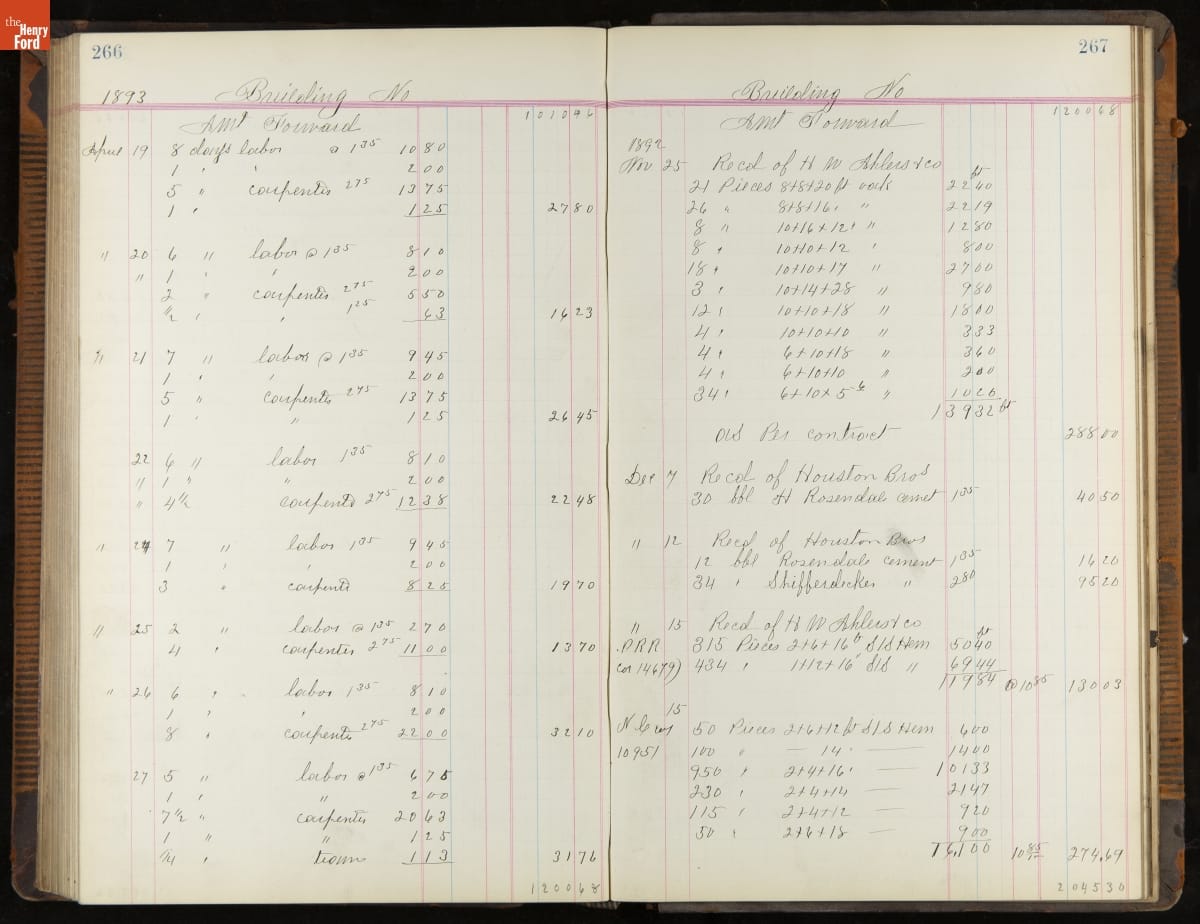 the
Henry
Ford
266
1893 Building No
Amt Forward 101096
April 19 8 days labor @ 1 35 1080
1 " " 200
5 " carpenter 2 75 1375
1 " 125 2780
" 20 6 " labor @ 1 35 810
" 1 " " 200
2 " carpenter 2 75 550
1/2 " " 1 25 63 1623
" 21 7 " labor @ 1 35 945
1 " " 200
5 " carpenter 2 75 1375
1 " " 125 2645
22 6 " labor 1 35 810
" 1 " " 200
" 4 1/2 carpenter 2 75 1238 2248
" 24 7 " labor 1 35 945
1 " " 200
3 " carpenter 825 1970
" 25 2 " labor @ 1 35 270
4 " carpenter 2 75 1100 1370
" 26 6 " labor 1 35 810
1 " " 200
8 " carpenter 2 75 2200 3210
27 5 " labor @ 1 35 675
1 " " 200
7 1/2 " carpenter 2063
1 " " 125
1/4 " team 113 3176
120068
267
Building No
Amt Forward 120068
1892
Nov 25 Recd of H W Ahlers & co
21 Pieces 8+8+20 ft oak 2240 ft
26 " 8+8+16 " " 2219
8 " 10+16+12 " " 1280
8 " 10+10+12 " 800
18 " 10+10+17 " 2700
3 " 10+14+28 " 980
12 " 10+10+18 " 1800
4 " 10+10+10 " 333
4 " 6+10+18 " 360
4 " 6+10+10 " 200
34 " 6+10+5 6 " 1020
13932 ft
as Per contract 28800
Dec 7 Recd of Houston Bros
30 bbl H Rosendale cemet 1 35 4050
" 12 Recd of Houston Bros
12 bbl Rosendale cement 1 35 1620
34 " Shifferdecker " 280 9520
" 15 Recd of H W Ahlers & co
P.R.R. 315 Pieces 2+6+16 ft S/S Hem 5040 ft
Car 14679) 434 " 1+12+16 " S/S " 6944
11984 @ 10 85 13003
15
N C car 50 Pieces 2+6+12 ft S/S Hem 600
10951 100 " — 14 " — 1400
950 " 2+4+16 " — 10133
230 " 2+4+14 — 2147
115 " 2+4+12 — 920
50 " 2+6+18 — 900
16,100 10 85 274.69
204530